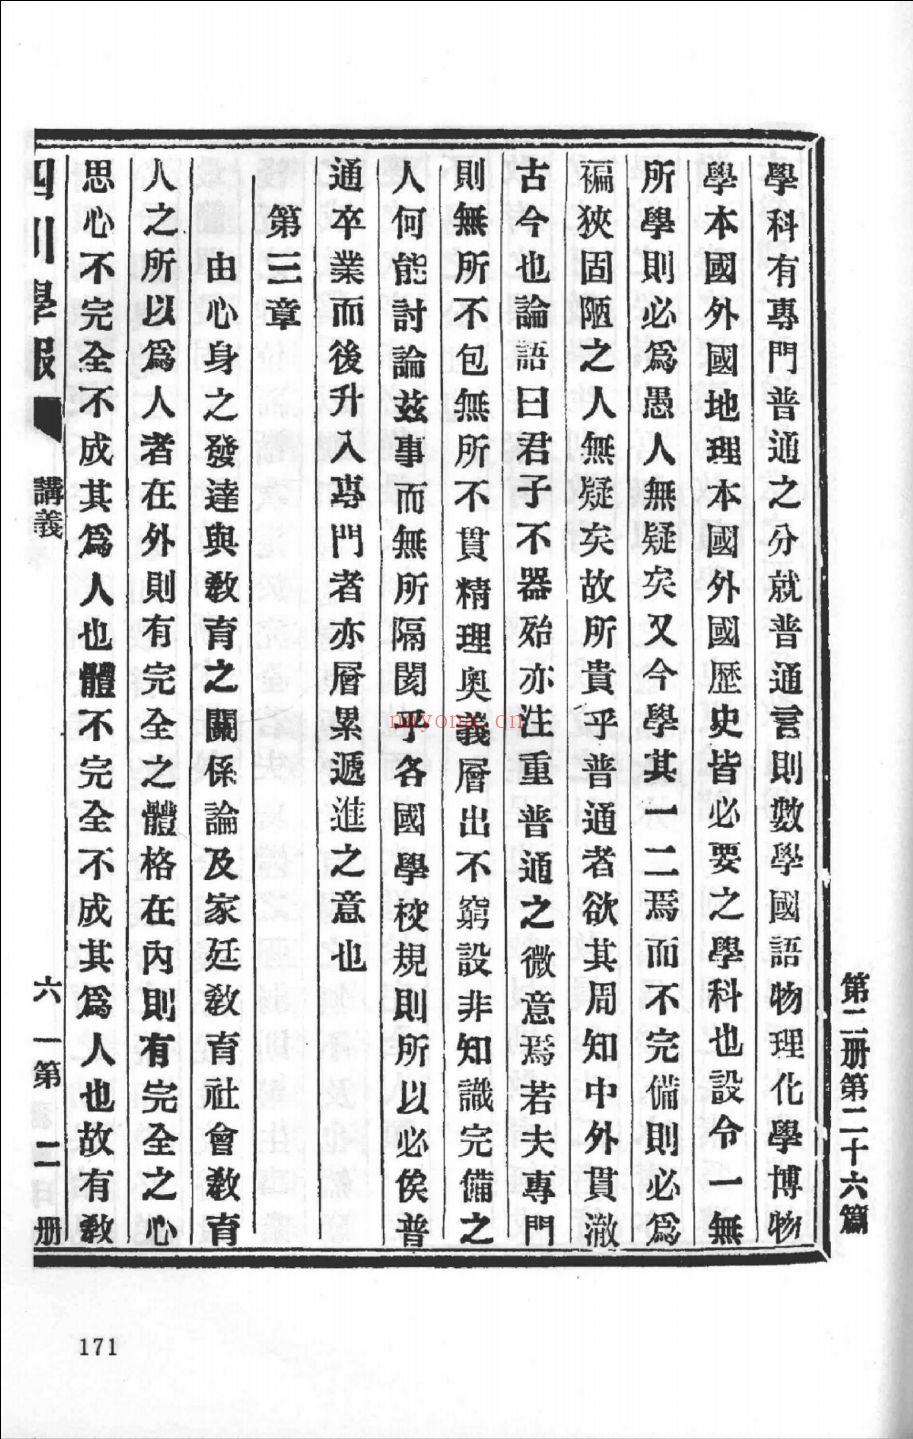 第二册第二十六篇
學科有專門普通之分就普通言則數學國語物理化學博物
學本國外國地理本國外國歷史皆必要之學科也設令一無
所學則必爲愚人無疑矣又今學其一二焉而不完備則必爲
褊狹固陋之人無疑矣故所貴乎普通者欲其周知中外貫澈
古今也論語曰君子不器殆亦注重普通之微意焉若夫專門
則無所不包無所不貫精理奥義層出不窮設非知識完備之
人何能討論茲事而無所隔閡乎各國學校規則所以必俟普
通卒業而後升入專門者亦層累遞進之意也
第三章
由心身之發達與敎育之關係論及家廷敎育社會敎育
人之所以爲人者在外則有完全之體格在內則有完全之心
思心不完全不成其爲人也體不完全不成其爲人也故有敎
四川學報 講義 六 一第二册
171
nayona.cn